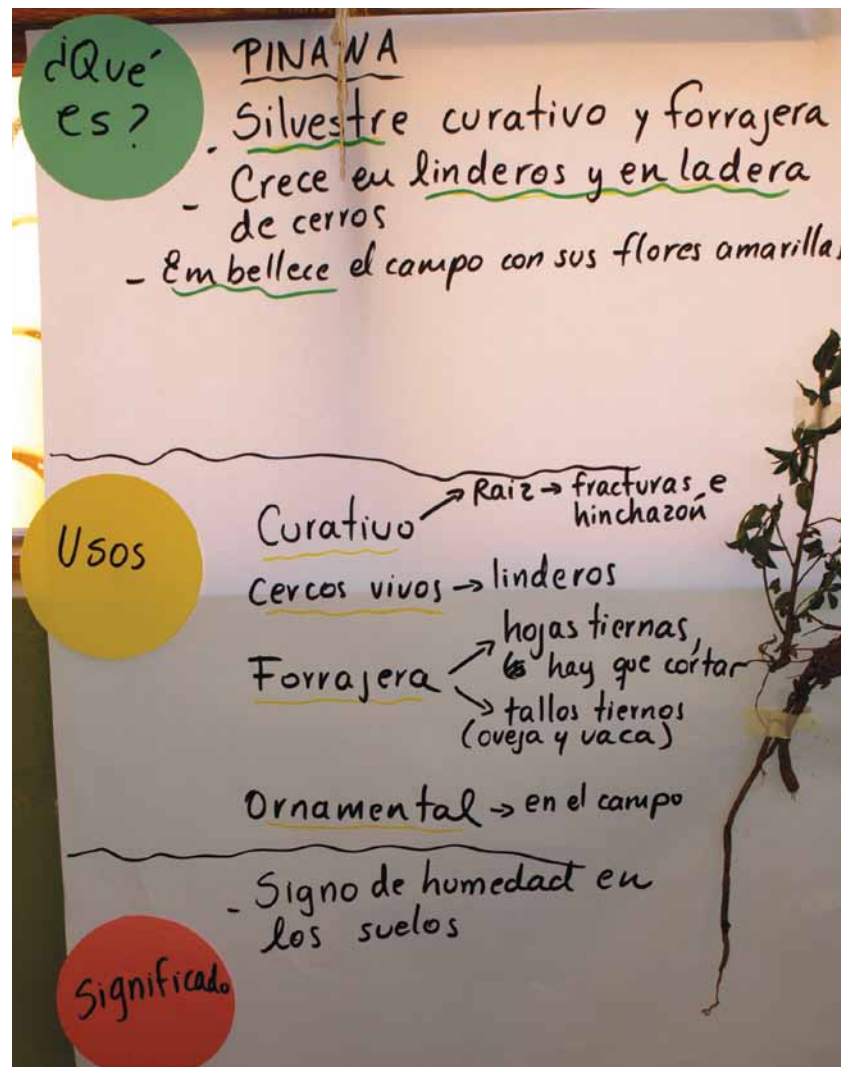 ¿Qué
es?
PINAWA
- Silvestre curativo y forrajera
- Crece en linderos y en ladera
de cerros
- Embellece el campo con sus flores amarillas
Usos
Curativo → Raiz → fracturas e
hinchazón
Cercos vivos → linderos
Forrajera → hojas tiernas,
hay que cortar
→ tallos tiernos
(oveja y vaca)
Ornamental → en el campo
Significado
- Signo de humedad en
los suelos